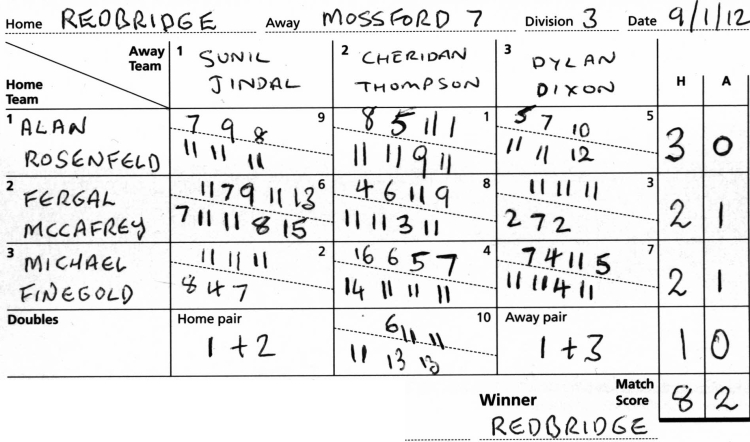 Home REDBRIDGE Away MOSSFORD 7 Division 3 Date 9/1/12
Away Team 1 SUNIL JINDAL 2 CHERIDAN THOMPSON 3 DYLAN DIXON H A
Home Team
1 ALAN ROSENFELD 9 1 5 3 0
7 9 8 8 5 11 1 5 7 10
11 11 11 11 11 9 11 11 11 12
2 FERGAL MCCAFREY 6 8 3 2 1
11 7 9 11 13 4 6 11 9 11 11 11
7 11 11 8 15 11 11 3 11 2 7 2
3 MICHAEL FINEGOLD 2 4 7 2 1
11 11 11 16 6 5 7 7 4 11 5
8 4 7 14 11 11 11 11 11 4 11
Doubles Home pair 10 Away pair
1 + 2 6 11 11 1 + 3 1 0
11 13 13
Winner Match Score 8 2
REDBRIDGE